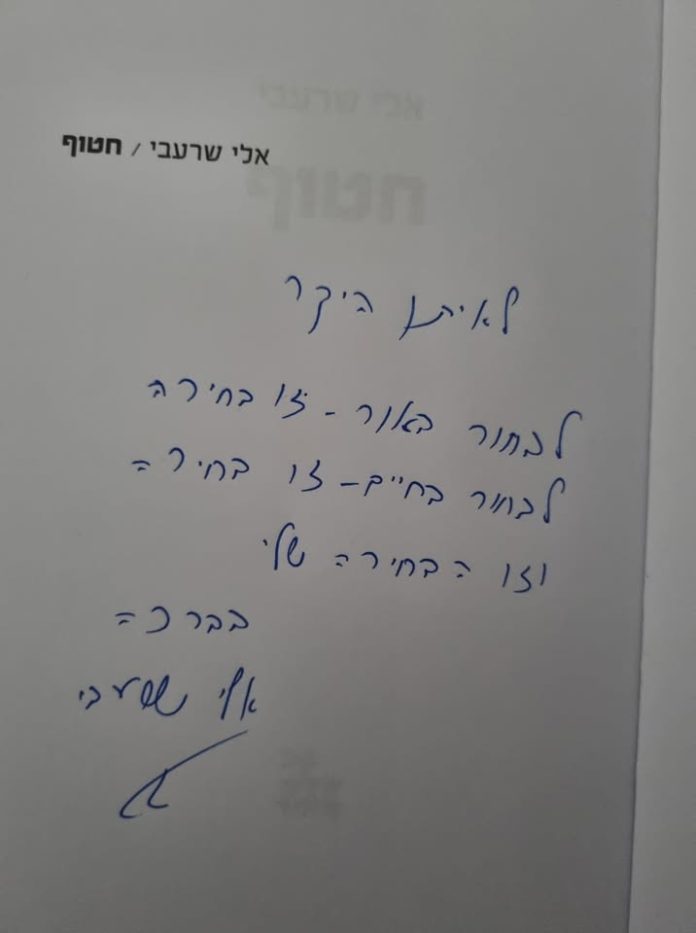 אלי שרעבי / חטוף
לאיתן היקר
לבחור באור - זו בחירה
לבחור בחיים - זו בחירה
וזו הבחירה שלי
בברכה
אלי שרעבי